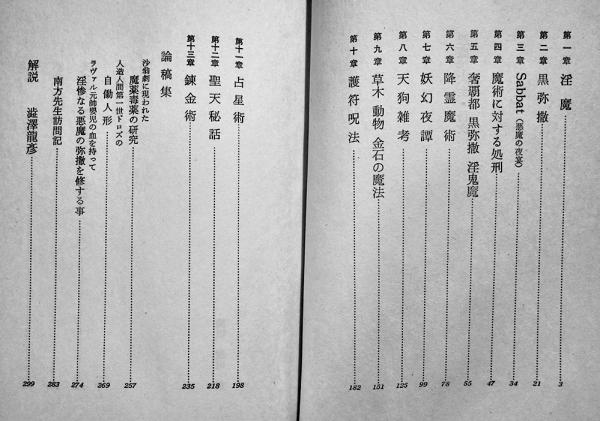 第一章　淫魔　3
第二章　黒弥撒　21
第三章　Sabbat（悪魔の夜宴）　34
第四章　魔術に対する処刑　47
第五章　奢覇都 黒弥撒 淫鬼魔　55
第六章　降霊魔術　78
第七章　妖幻夜譚　99
第八章　天狗雑考　125
第九章　草木 動物 金石の魔法　151
第十章　護符呪法　182
第十一章　占星術　198
第十二章　聖天秘話　218
第十三章　錬金術　235
論稿集
沙翁劇に現われた
魔薬毒薬の研究　257
人造人間第一世ドロズの
自働人形　269
ラヴァル元帥嬰児の血を持って
淫惨なる悪魔の弥撒を修する事　274
南方先生訪問記　283
解説　澁澤龍彦　299